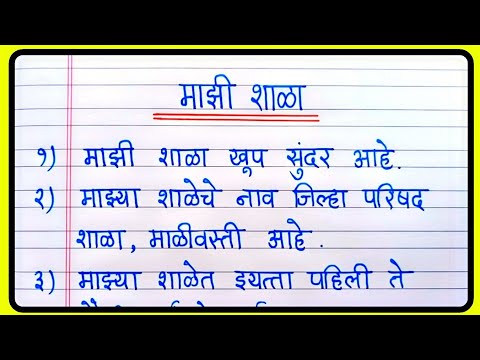 माझी शाळा
१) माझी शाळा खूप सुंदर आहे.
२) माझ्या शाळेचे नाव जिल्हा परिषद
शाळा, माळीवस्ती आहे.
३) माझ्या शाळेत इयत्ता पहिली ते